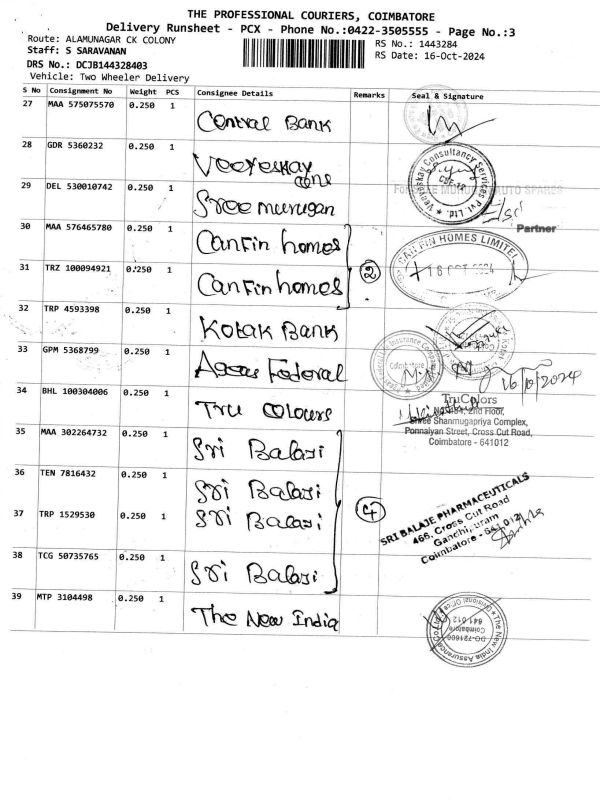 THE PROFESSIONAL COURIERS, COIMBATORE
Delivery Runsheet - PCX - Phone No.:0422-3505555 - Page No.:3
Route: ALAMUNAGAR CK COLONY
RS No.: 1443284
Staff: S SARAVANAN
RS Date: 16-Oct-2024
DRS No.: DCJB144328403
Vehicle: Two Wheeler Delivery
S No Consignment No Weight PCS Consignee Details Remarks Seal & Signature
27 MAA 575075570 0.250 1 Central Bank
28 GDR 5360232 0.250 1 Veeyeskay
Veeyeskay Consultancy Services Pvt. Ltd.
29 DEL 530010742 0.250 1 Sree murugan
AUTO SPARES
Partner
30 MAA 576465780 0.250 1 Canfin homes
CAN FIN HOMES LIMITED
31 TRZ 100094921 0.250 1 Canfin homes 2
16 OCT 2024
32 TRP 4593398 0.250 1 Kotak Bank
33 GPM 5368799 0.250 1 Ageas Federal
Coimbatore
16/10/2024
34 BHL 100304006 0.250 1 Tru Colours
TruColors
2nd Floor,
Shree Shanmugapriya Complex,
Ponnaiyan Street, Cross Cut Road,
Coimbatore - 641012
35 MAA 302264732 0.250 1 Sri Balaji
36 TEN 7816432 0.250 1 Sri Balaji
37 TRP 1529530 0.250 1 Sri Balaji 4
SRI BALAJE PHARMACEUTICALS
466, Cross Cut Road
Gandhipuram
Coimbatore - 641 012
38 TCG 50735765 0.250 1 Sri Balaji
39 MTP 3104498 0.250 1 The New India
The New India Assurance Co. Ltd.
Divisional Office
DO-721600
Coimbatore
641 012